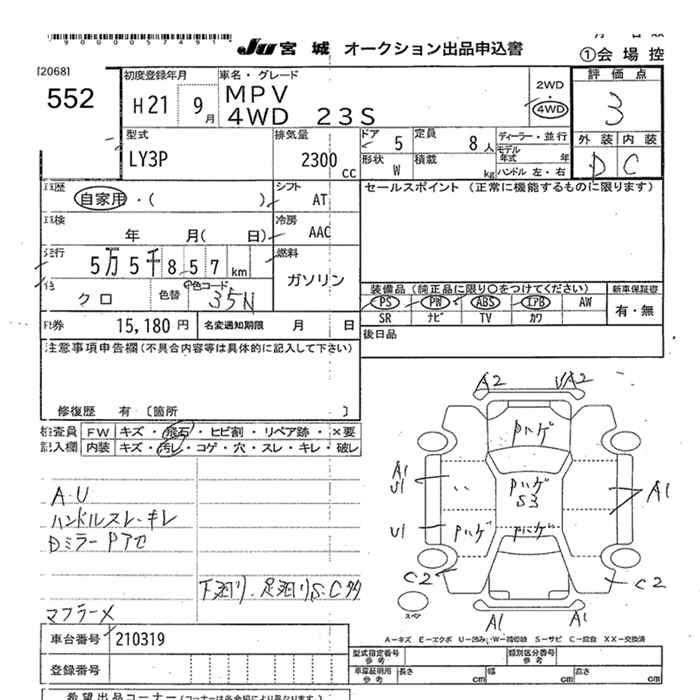 90000057491
JU 宮城 オークション出品申込書
①会場控
[2068]
552
初度登録年月
H21 9月
車名・グレード
MPV
4WD 23S
2WD
・
4WD
評価点
3
外装 内装
D C
型式
LY3P
排気量
2300 cc
ドア 5
定員 8人
ディーラー・並行
モデル年式 年
形状 W
積載 kg
ハンドル 左・右
車歴
自家用・( )
シフト
AT
セールスポイント (正常に機能するものに限ります)
車検
年 月( 日)
冷房
AAC
走行
5万5千857km
燃料
ガソリン
色
クロ
色替
色コード
35N
装備品 (純正品に限り○をつけてください)
PS PW ABS エアB AW
SR ナビ TV カワ
新車保証書
有・無
R券 15,180円
名変通知期限 月 日
後日品
注意事項申告欄(不具合内容等は具体的に記入して下さい)
修復歴 有 〔箇所 〕
検査員記入欄
FW キズ・飛石・ヒビ割・リペア跡・×要
内装 キズ・汚レ・コゲ・穴・スレ・キレ・破レ
A.U
ハンドルスレ・キレ
Dミラー Pアセ
下廻り・足廻りS.C多
マフラーメ
A2 UA2
Pハゲ
A1
U1
Pハゲ
S3
A1
U1
Pハゲ
Pハゲ
C2
C2
A1
A1
スペア
A－キズ E－エクボ U－凹み W－補修跡 S－サビ C－腐食 XX－交換済
車台番号 210319
登録番号
型式指定番号
参考
類別区分番号
参考
車庫証明用
参考
長さ cm
幅 cm
高さ cm
希望出品コーナー